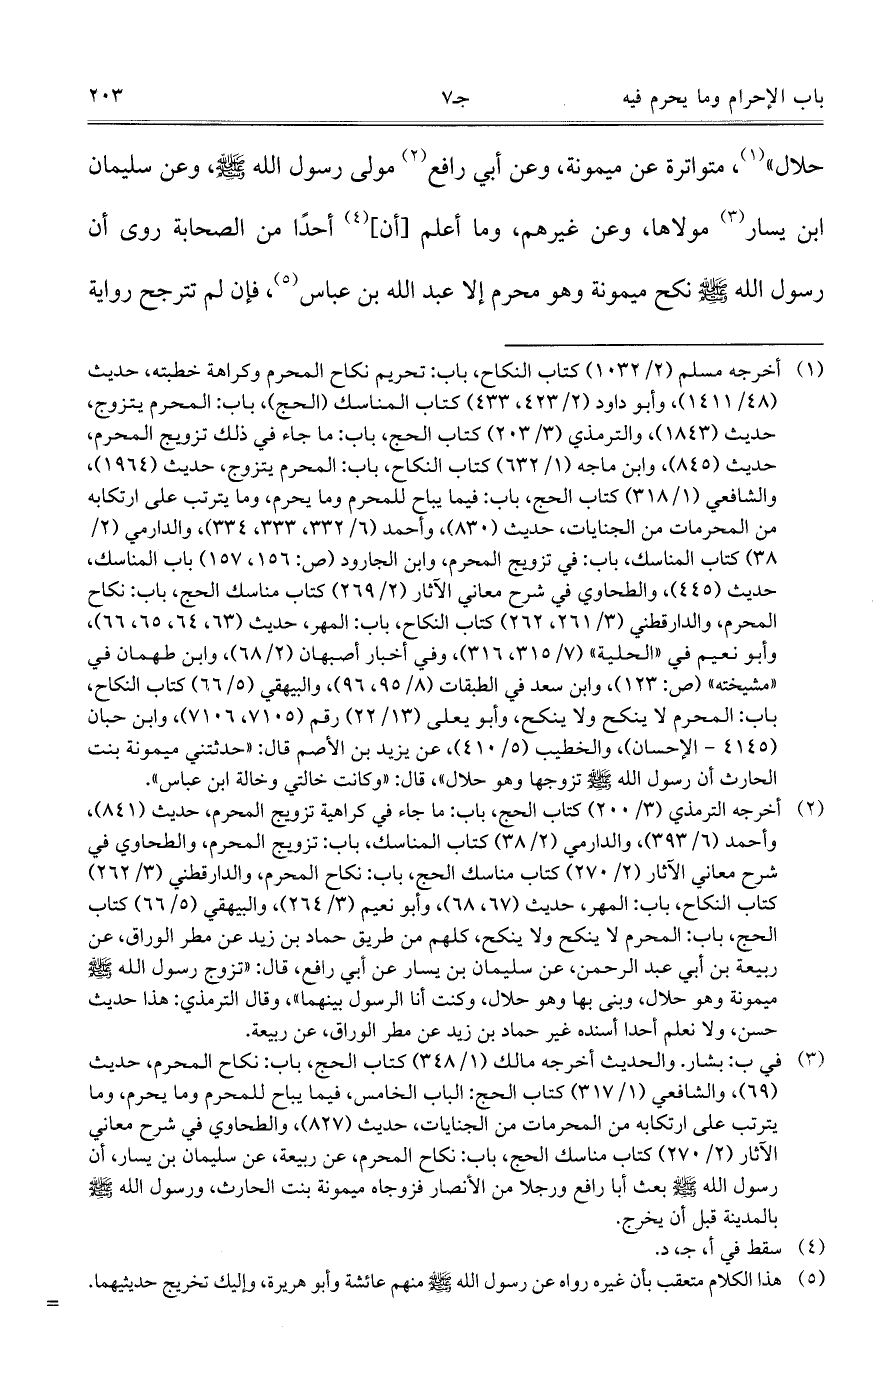 باب الإحرام وما يحرم فيه جـ٧ ٢٠٣
حلال»(١)، متواترة عن ميمونة، وعن أبي رافع(٢) مولى رسول الله ﷺ، وعن سليمان
ابن يسار(٣) مولاها، وعن غيرهم، وما أعلم [أن](٤) أحدًا من الصحابة روى أن
رسول الله ﷺ نكح ميمونة وهو محرم إلا عبد الله بن عباس(٥)، فإن لم تترجح رواية
(١) أخرجه مسلم (٢/ ١٠٣٢) كتاب النكاح، باب: تحريم نكاح المحرم وكراهة خطبته، حديث
(٤٨/ ١٤١١)، وأبو داود (٢/ ٤٢٣، ٤٣٣) كتاب المناسك (الحج)، باب: المحرم يتزوج،
حديث (١٨٤٣)، والترمذي (٣/ ٢٠٣) كتاب الحج، باب: ما جاء في ذلك تزويج المحرم،
حديث (٨٤٥)، وابن ماجه (١/ ٦٣٢) كتاب النكاح، باب: المحرم يتزوج، حديث (١٩٦٤)،
والشافعي (١/ ٣١٨) كتاب الحج، باب: فيما يباح للمحرم وما يحرم، وما يترتب على ارتكابه
من المحرمات من الجنايات، حديث (٨٣٠)، وأحمد (٦/ ٣٣٢، ٣٣٣، ٣٣٤)، والدارمي (٢/
٣٨) كتاب المناسك، باب: في تزويج المحرم، وابن الجارود (ص: ١٥٦، ١٥٧) باب المناسك،
حديث (٤٤٥)، والطحاوي في شرح معاني الآثار (٢/ ٢٦٩) كتاب مناسك الحج، باب: نكاح
المحرم، والدارقطني (٣/ ٢٦١، ٢٦٢) كتاب النكاح، باب: المهر، حديث (٦٣، ٦٤، ٦٥، ٦٦)،
وأبو نعيم في «الحلية» (٧/ ٣١٥، ٣١٦)، وفي أخبار أصبهان (٢/ ٦٨)، وابن طهمان في
«مشيخته» (ص: ١٢٣)، وابن سعد في الطبقات (٨/ ٩٥، ٩٦)، والبيهقي (٥/ ٦٦) كتاب النكاح،
باب: المحرم لا ينكح ولا ينكح، وأبو يعلى (١٣/ ٢٢) رقم (٧١٠٥، ٧١٠٦)، وابن حبان
(٤١٤٥ - الإحسان)، والخطيب (٥/ ٤١٠)، عن يزيد بن الأصم قال: «حدثتني ميمونة بنت
الحارث أن رسول الله ﷺ تزوجها وهو حلال»، قال: «وكانت خالتي وخالة ابن عباس».
(٢) أخرجه الترمذي (٣/ ٢٠٠) كتاب الحج، باب: ما جاء في كراهية تزويج المحرم، حديث (٨٤١)،
وأحمد (٦/ ٣٩٣)، والدارمي (٢/ ٣٨) كتاب المناسك، باب: تزويج المحرم، والطحاوي في
شرح معاني الآثار (٢/ ٢٧٠) كتاب مناسك الحج، باب: نكاح المحرم، والدارقطني (٣/ ٢٦٢)
كتاب النكاح، باب: المهر، حديث (٦٧، ٦٨)، وأبو نعيم (٣/ ٢٦٤)، والبيهقي (٥/ ٦٦) كتاب
الحج، باب: المحرم لا ينكح ولا ينكح، كلهم من طريق حماد بن زيد عن مطر الوراق، عن
ربيعة بن أبي عبد الرحمن، عن سليمان بن يسار عن أبي رافع، قال: «تزوج رسول الله ﷺ
ميمونة وهو حلال، وبنى بها وهو حلال، وكنت أنا الرسول بينهما»، وقال الترمذي: هذا حديث
حسن، ولا نعلم أحدا أسنده غير حماد بن زيد عن مطر الوراق، عن ربيعة.
(٣) في ب: بشار. والحديث أخرجه مالك (١/ ٣٤٨) كتاب الحج، باب: نكاح المحرم، حديث
(٦٩)، والشافعي (١/ ٣١٧) كتاب الحج: الباب الخامس، فيما يباح للمحرم وما يحرم، وما
يترتب على ارتكابه من المحرمات من الجنايات، حديث (٨٢٧)، والطحاوي في شرح معاني
الآثار (٢/ ٢٧٠) كتاب مناسك الحج، باب: نكاح المحرم، عن ربيعة، عن سليمان بن يسار، أن
رسول الله ﷺ بعث أبا رافع ورجلا من الأنصار فزوجاه ميمونة بنت الحارث، ورسول الله ﷺ
بالمدينة قبل أن يخرج.
(٤) سقط في أ، جـ، د.
(٥) هذا الكلام متعقب بأن غيره رواه عن رسول الله ﷺ منهم عائشة وأبو هريرة، وإليك تخريج حديثيهما.
=